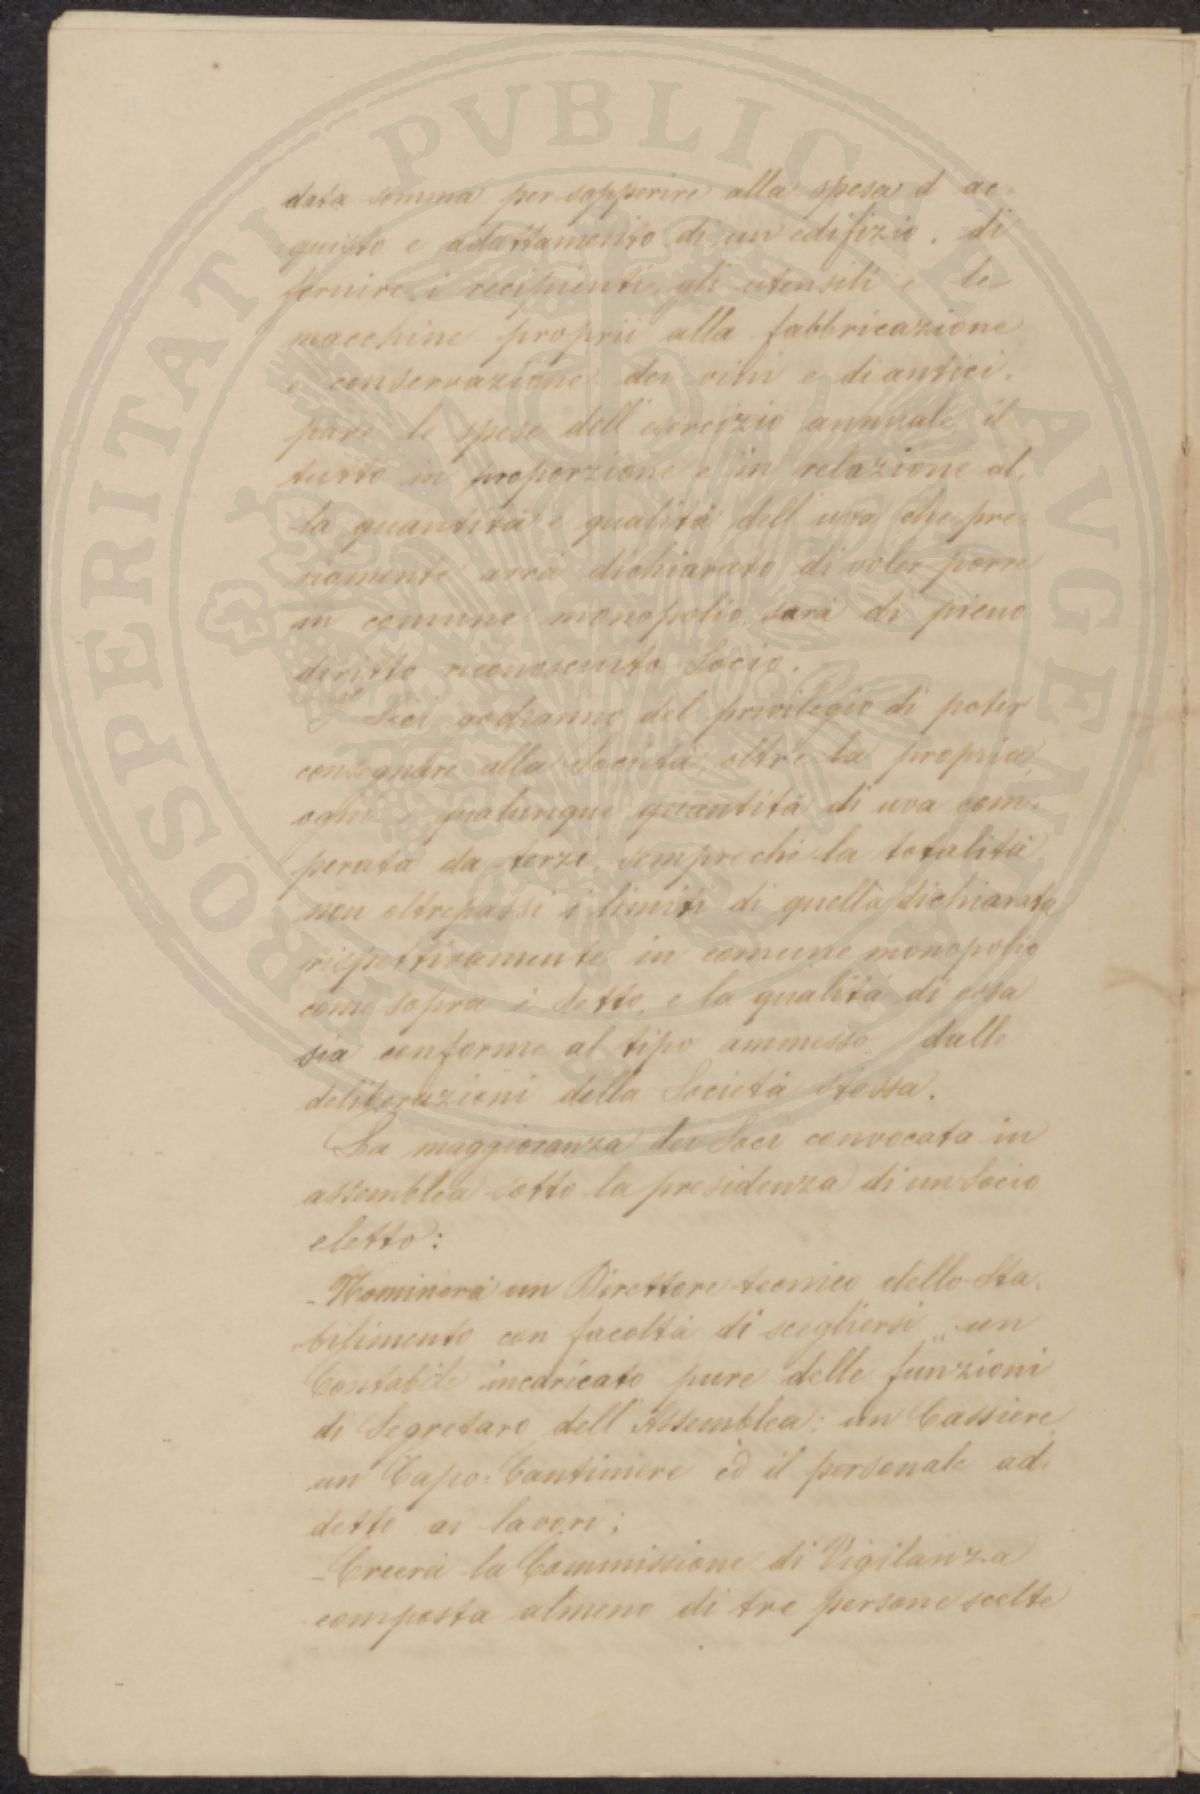 PROSPERITATI PVBLICAE AVGENDAE
data somma per sopperire alla spesa d'ac-
quisto e adattamento di un edifizio, di
fornire i recipienti, gli utensili e le
macchine proprii alla fabbricazione
e conservazione dei vini e di antici-
pare le spese dell'esercizio annuale il
tutto in proporzione e in relazione al-
la quantità e qualità dell'uva che pre-
viamente avrà dichiarato di voler porre
in comune monopolio, sarà di pieno
diritto riconosciuto Socio.
I Soci godranno del privilegio di poter
consegnare alla Società, oltre la propria,
ogni e qualunque quantità di uva com-
perata da terzi sempreché la totalità
non oltrepassi i limiti di quella dichiarata
rispettivamente in comune monopolio
come sopra è detto, e la qualità di essa
sia conforme al tipo ammesso dalle
deliberazioni della Società stessa.
La maggioranza dei Soci convocata in
assemblea sotto la presidenza di un Socio
eletto:
- Nominerà un Direttore tecnico dello Sta-
bilimento con facoltà di scegliersi un
Contabile incaricato pure delle funzioni
di Segretaro dell'Assemblea; un Cassiere,
un Capo-Cantiniere ed il personale ad-
detto ai lavori;
- Creerà la Commissione di Vigilanza
composta almeno di tre persone scelte